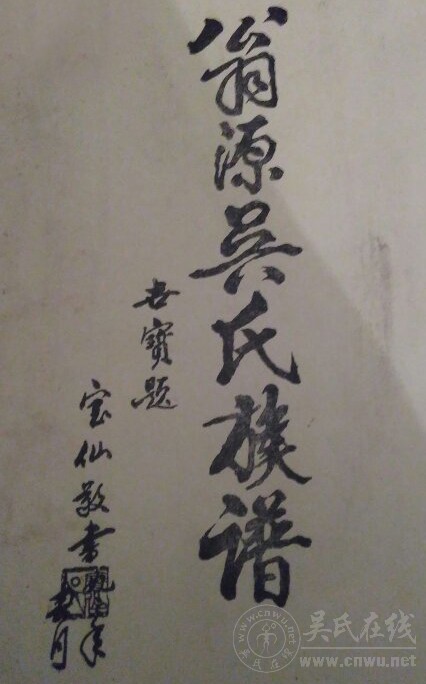 翁源吴氏族谱
世寳题
宝仙敬书
年
春月
吴氏在线
www.cnwu.net